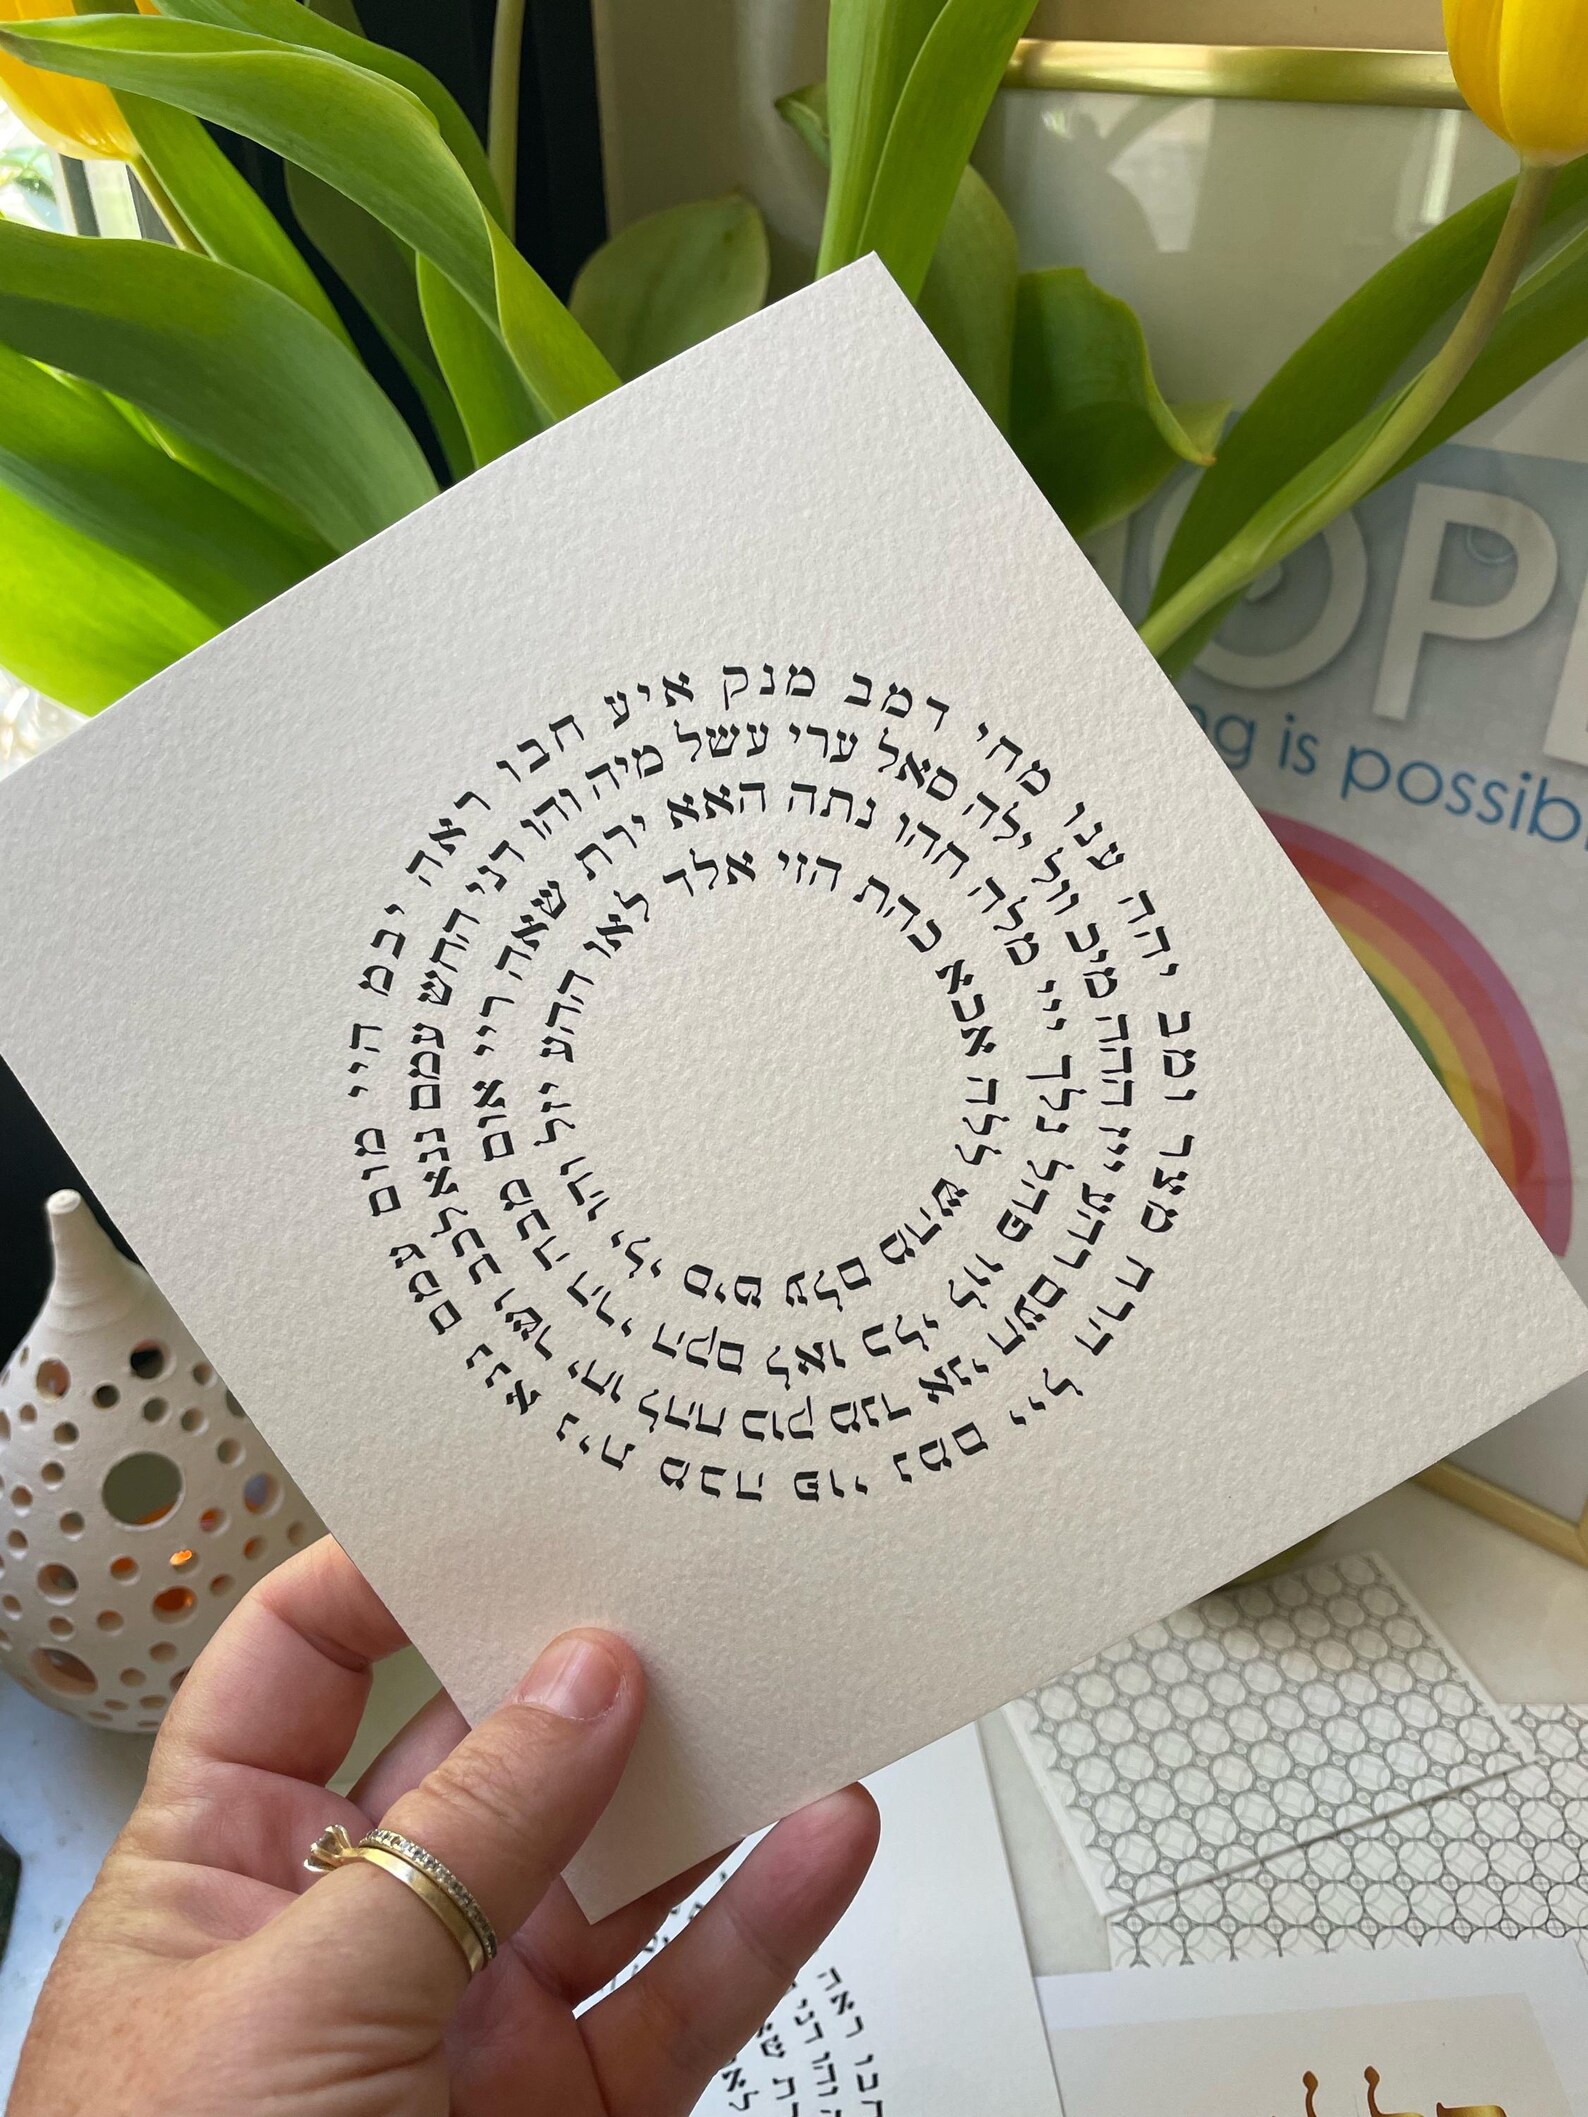 והו ילי סיט עלם מהש ללה אכא כהת הזי אלד לאו ההע יזל
מבה הרי הקם לאו כלי לוו פהל נלך ייי מלה חהו נתה האא ירת שאה ריי אום
לכב ושר יחו להח כוק מנד אני חעם רהע ייז ההה מיכ וול ילה סאל ערי עשל מיה והו דני החש עמם ננא
עמם ננא נית מבה פוי נמם ייל הרח מצר ומב יהה ענו מחי דמב מנק איע חבו ראה יבמ היי מום
is possib